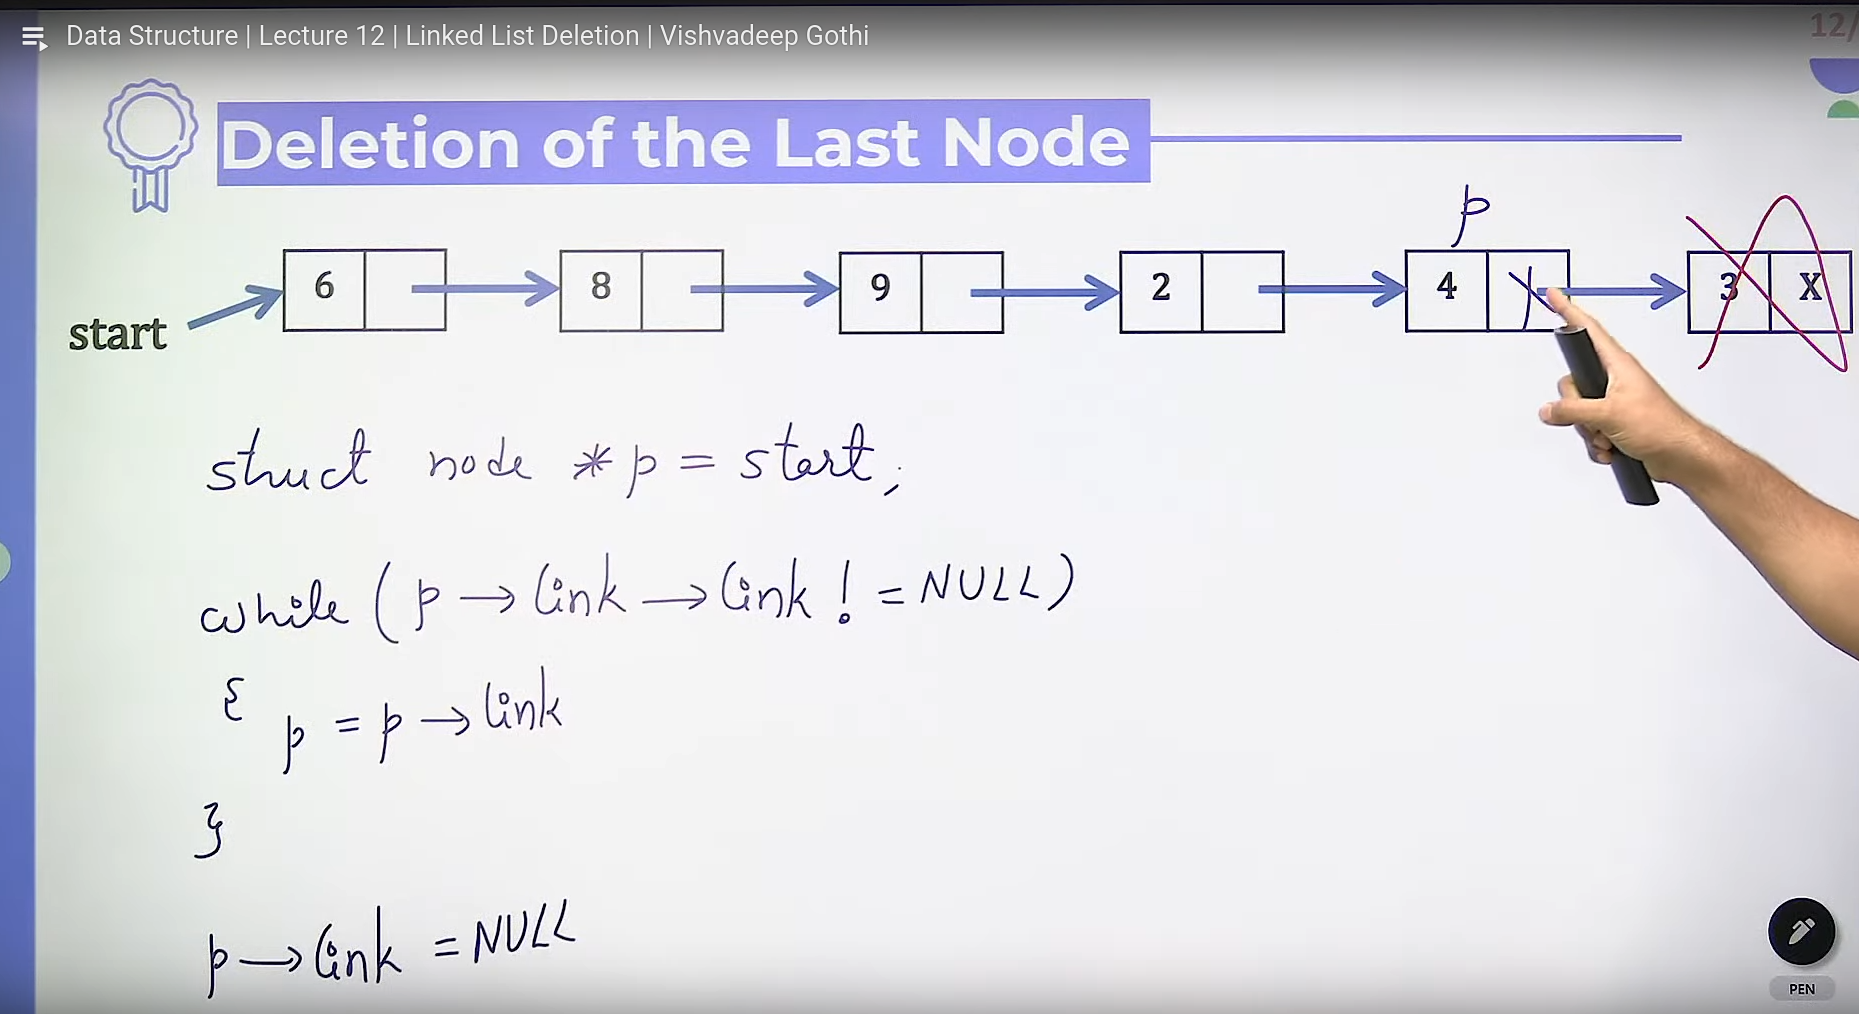 Data Structure | Lecture 12 | Linked List Deletion | Vishvadeep Gothi
12/
Deletion of the Last Node
p
6 8 9 2 4 X 3 X
start
struct node *p = start;
while (p → link → link != NULL)
{
p = p → link
}
p → link = NULL
PEN